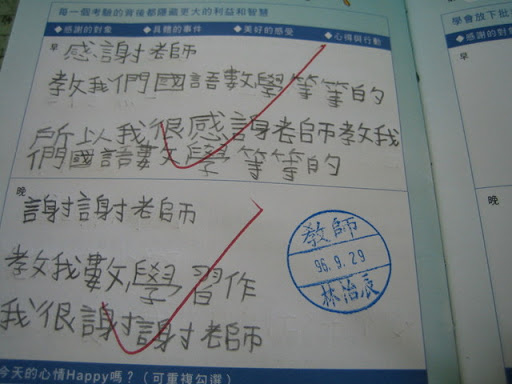 每一個考驗的背後都隱藏更大的利益和智慧
◆感謝的對象 ◆具體的事件 ◆美好的感受 ◆心得與行動
早
感謝老師
教我們國語數學等等的
所以我很感謝老師教我
們國語數學等等的
晚
謝謝老師
教我數學習作
我很謝謝老師
教師
96.9.29
林治辰
今天的心情Happy嗎？（可重複勾選）
學會放下批
◆感謝的對象
早
晚